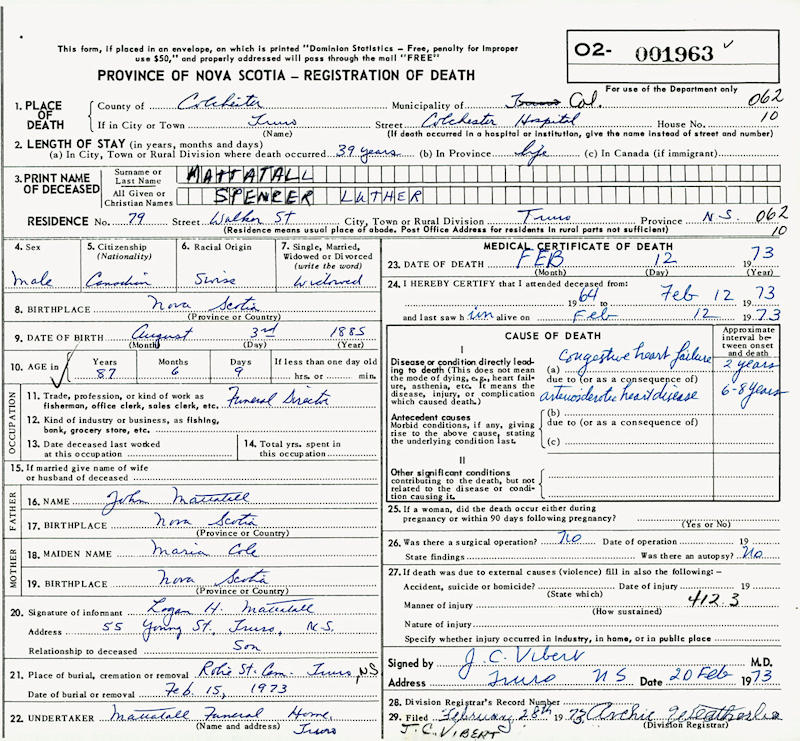 This form, if placed in an envelope, on which is printed "Dominion Statistics – Free, penalty for improper
use $50," and properly addressed will pass through the mail "FREE"
PROVINCE OF NOVA SCOTIA – REGISTRATION OF DEATH
O2- 001963
For use of the Department only
1. PLACE OF DEATH
County of Colchester Municipality of Col. 062
If in City or Town Truro Street Colchester Hospital House No. 10
(Name) (If death occurred in a hospital or institution, give the name instead of street and number)
2. LENGTH OF STAY (in years, months and days)
(a) In City, Town or Rural Division where death occurred 39 years (b) In Province life (c) In Canada (if immigrant)
3. PRINT NAME OF DECEASED
Surname or Last Name MATTATALL
All Given or Christian Names SPENCER LUTHER
RESIDENCE No. 79 Street Walker St City, Town or Rural Division Truro Province N.S. 062
(Residence means usual place of abode. Post Office Address for residents in rural parts not sufficient) 10
4. Sex
Male
5. Citizenship (Nationality)
Canadian
6. Racial Origin
Swiss
7. Single, Married, Widowed or Divorced (write the word)
Widowed
8. BIRTHPLACE Nova Scotia
(Province or Country)
9. DATE OF BIRTH August 3rd 1885
(Month) (Day) (Year)
10. AGE in Years Months Days If less than one day old
87 6 9 hrs. or min.
OCCUPATION
11. Trade, profession, or kind of work as fisherman, office clerk, sales clerk, etc. Funeral Director
12. Kind of industry or business, as fishing, bank, grocery store, etc.
13. Date deceased last worked at this occupation
14. Total yrs. spent in this occupation
15. If married give name of wife or husband of deceased
FATHER
16. NAME John Mattatall
17. BIRTHPLACE Nova Scotia
(Province or Country)
MOTHER
18. MAIDEN NAME Maria Cole
19. BIRTHPLACE Nova Scotia
(Province or Country)
20. Signature of informant Logan H. Mattatall
Address 55 Young St. Truro, N.S.
Relationship to deceased Son
21. Place of burial, cremation or removal Robie St. Cem Truro, NS
Date of burial or removal Feb. 15, 1973
22. UNDERTAKER Mattatall Funeral Home,
(Name and address) Truro
MEDICAL CERTIFICATE OF DEATH
23. DATE OF DEATH FEB 12 1973
(Month) (Day) (Year)
24. I HEREBY CERTIFY that I attended deceased from:
1964 Feb 12 1973
and last saw him alive on Feb 12 1973
CAUSE OF DEATH
Approximate interval between onset and death
I
Disease or condition directly leading to death (This does not mean the mode of dying, e.g., heart failure, asthenia, etc. It means the disease, injury, or complication which caused death.)
(a) Congestive heart failure 2 years
due to (or as a consequence of)
arteriosclerotic heart disease 6-8 years
Antecedent causes
Morbid conditions, if any, giving rise to the above cause, stating the underlying condition last.
(b)
due to (or as a consequence of)
(c)
II
Other significant conditions contributing to the death, but not related to the disease or condition causing it.
25. If a woman, did the death occur either during pregnancy or within 90 days following pregnancy?
(Yes or No)
26. Was there a surgical operation? No Date of operation 19
State findings Was there an autopsy? No
27. If death was due to external causes (violence) fill in also the following:–
Accident, suicide or homicide? Date of injury 19
(State which)
Manner of injury 412.3
(How sustained)
Nature of injury
Specify whether injury occurred in industry, in home, or in public place
Signed by J.C. Vibert M.D.
Address Truro NS Date 20 Feb 1973
28. Division Registrar's Record Number
29. Filed February 28th 1973 Archie Weatherbie
J.C. VIBERT (Division Registrar)